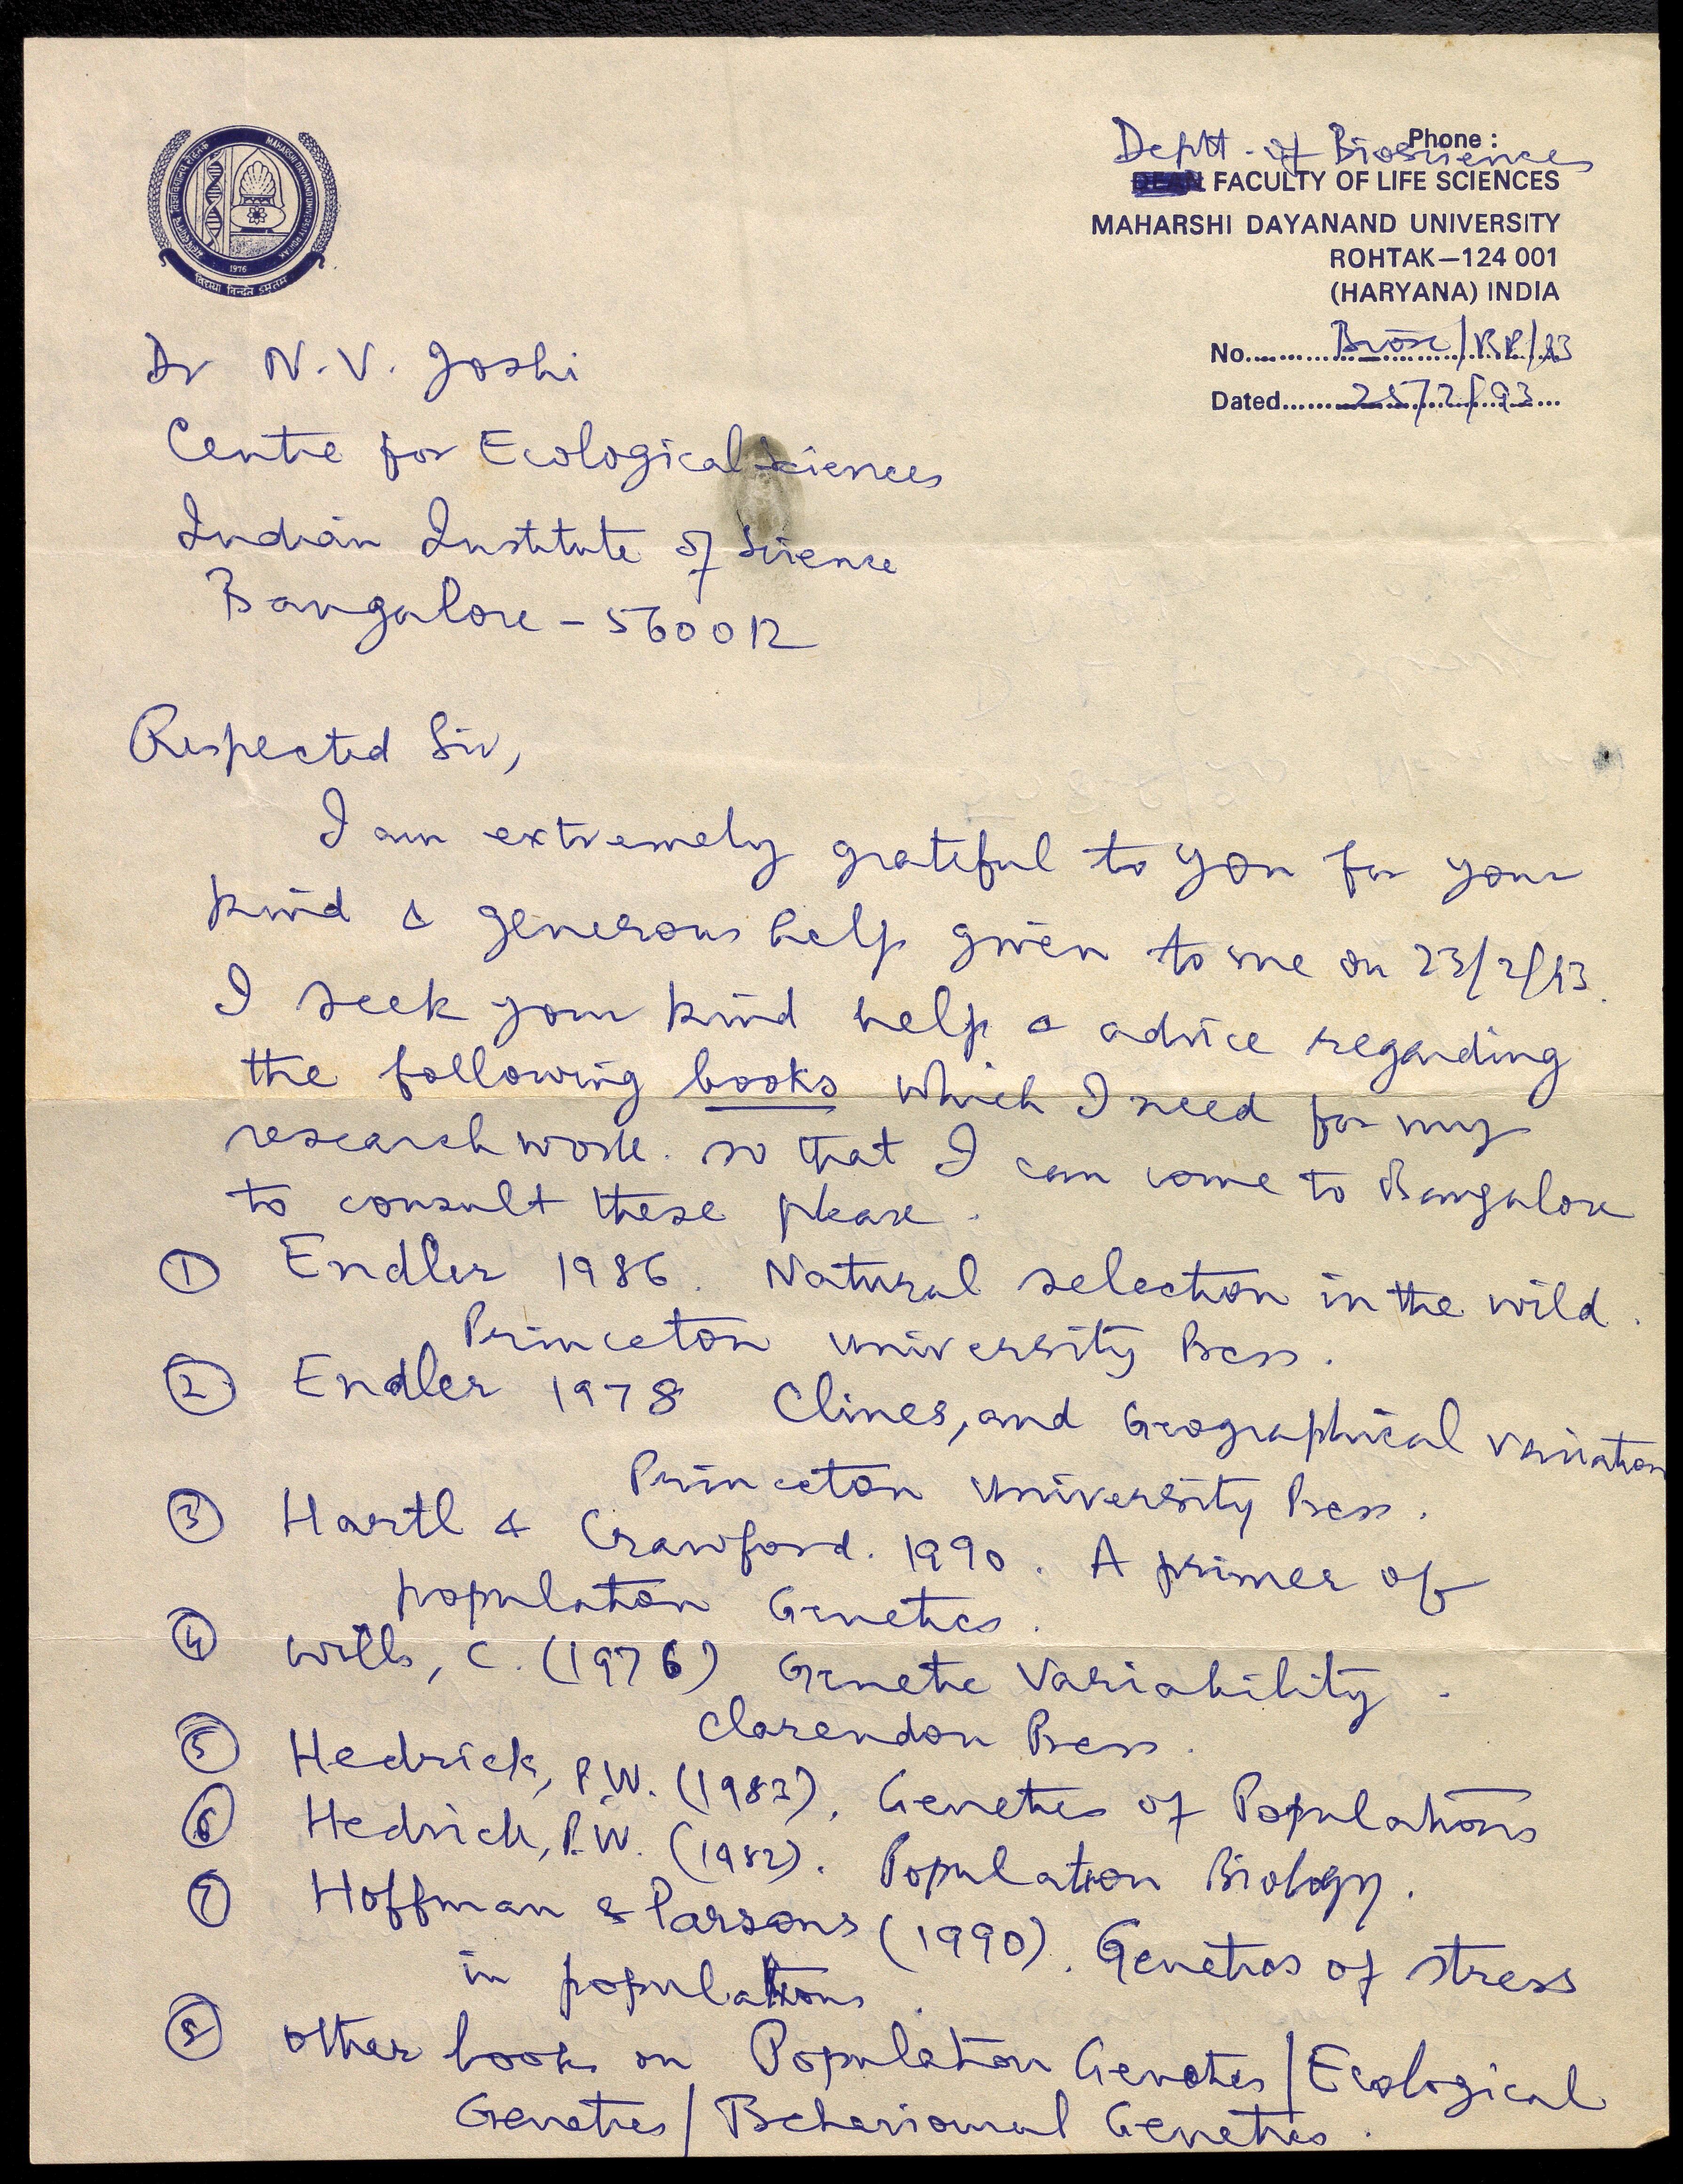 MAHARSHI DAYANAND UNIVERSITY ROHTAK
1976
Phone :
Deptt. of Biosciences
DEAN FACULTY OF LIFE SCIENCES
MAHARSHI DAYANAND UNIVERSITY
ROHTAK—124 001
(HARYANA) INDIA
No. Biosc/BR/93
Dated 25/2/93
Dr N.V. Joshi
Centre for Ecological Sciences
Indian Institute of Science
Bangalore - 560012
Respected Sir,
I am extremely grateful to you for your
kind & generous help given to me on 23/2/93.
I seek your kind help & advice regarding
the following books which I need for my
research work. so that I can come to Bangalore
to consult these please.
① Endler 1986. Natural selection in the wild.
Princeton University Press.
② Endler 1978 Clines, and Geographical variation
Princeton University Press.
③ Hartl & Crawford. 1990. A primer of
population Genetics.
④ Wills, C. (1976) Genetic Variability.
Clarendon Press.
⑤ Hedrick, P.W. (1983). Genetics of Populations
⑥ Hedrick, P.W. (1982). Population Biology.
⑦ Hoffman & Parsons (1990). Genetics of stress
in populations.
⑧ Other books on Population Genetics/Ecological
Genetics/Behavioural Genetics.